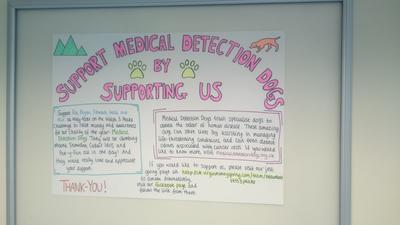 SUPPORT MEDICAL DETECTION DOGS
BY
SUPPORTING US
Medical Detection Dogs train specialist dogs to
detect the odour of human disease. These amazing
dogs can save lives by assisting in managing
life-threatening conditions, and can even detect
odours associated with cancer cells. If you would
like to know more visit
Support
as they take on the Welsh 3 Peaks
Challenge to raise money and awareness
for our charity of the year: Medical
Detection Dogs! They will be climbing
Snowdon, Cader Idris and
Pen-y-Fan all in one day! And
they would really love and appreciate
your support.
THANK-YOU!
If you would like to support us, please visit our just
giving page on
to donate. Alternatively,
visit our facebook page and
follow the link from there.